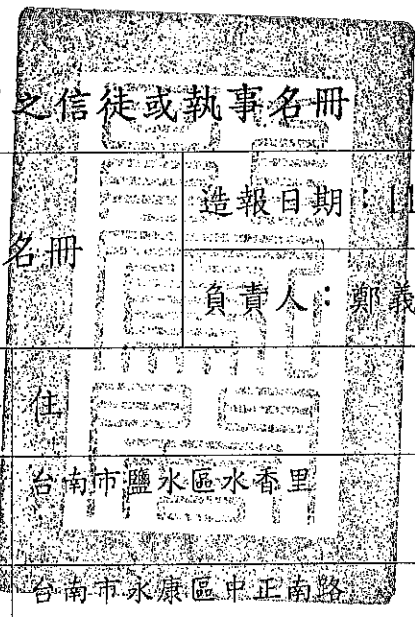 之信徒或執事名冊
造報日期：11
名冊
負責人：鄭義
住
台南市鹽水區水香里
台南市永康區中正南路